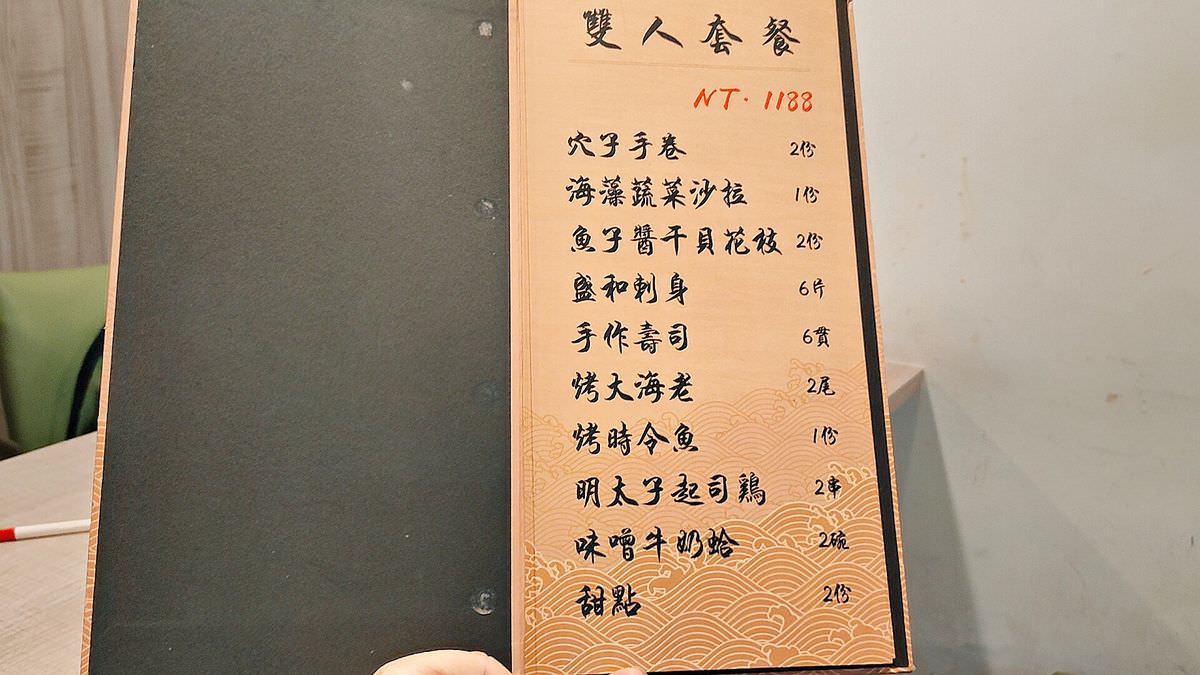 雙人套餐
NT. 1188
穴子手卷 2份
海藻蔬菜沙拉 1份
魚子醬干貝花枝 2份
盛和刺身 6片
手作壽司 6貫
烤大海老 2尾
烤時令魚 1份
明太子起司鷄 2串
味噌牛奶蛤 2碗
甜點 2份